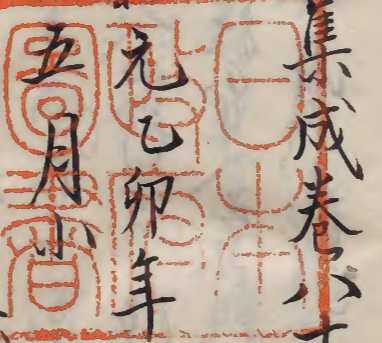 集成卷八十
元乙卯年
五月小